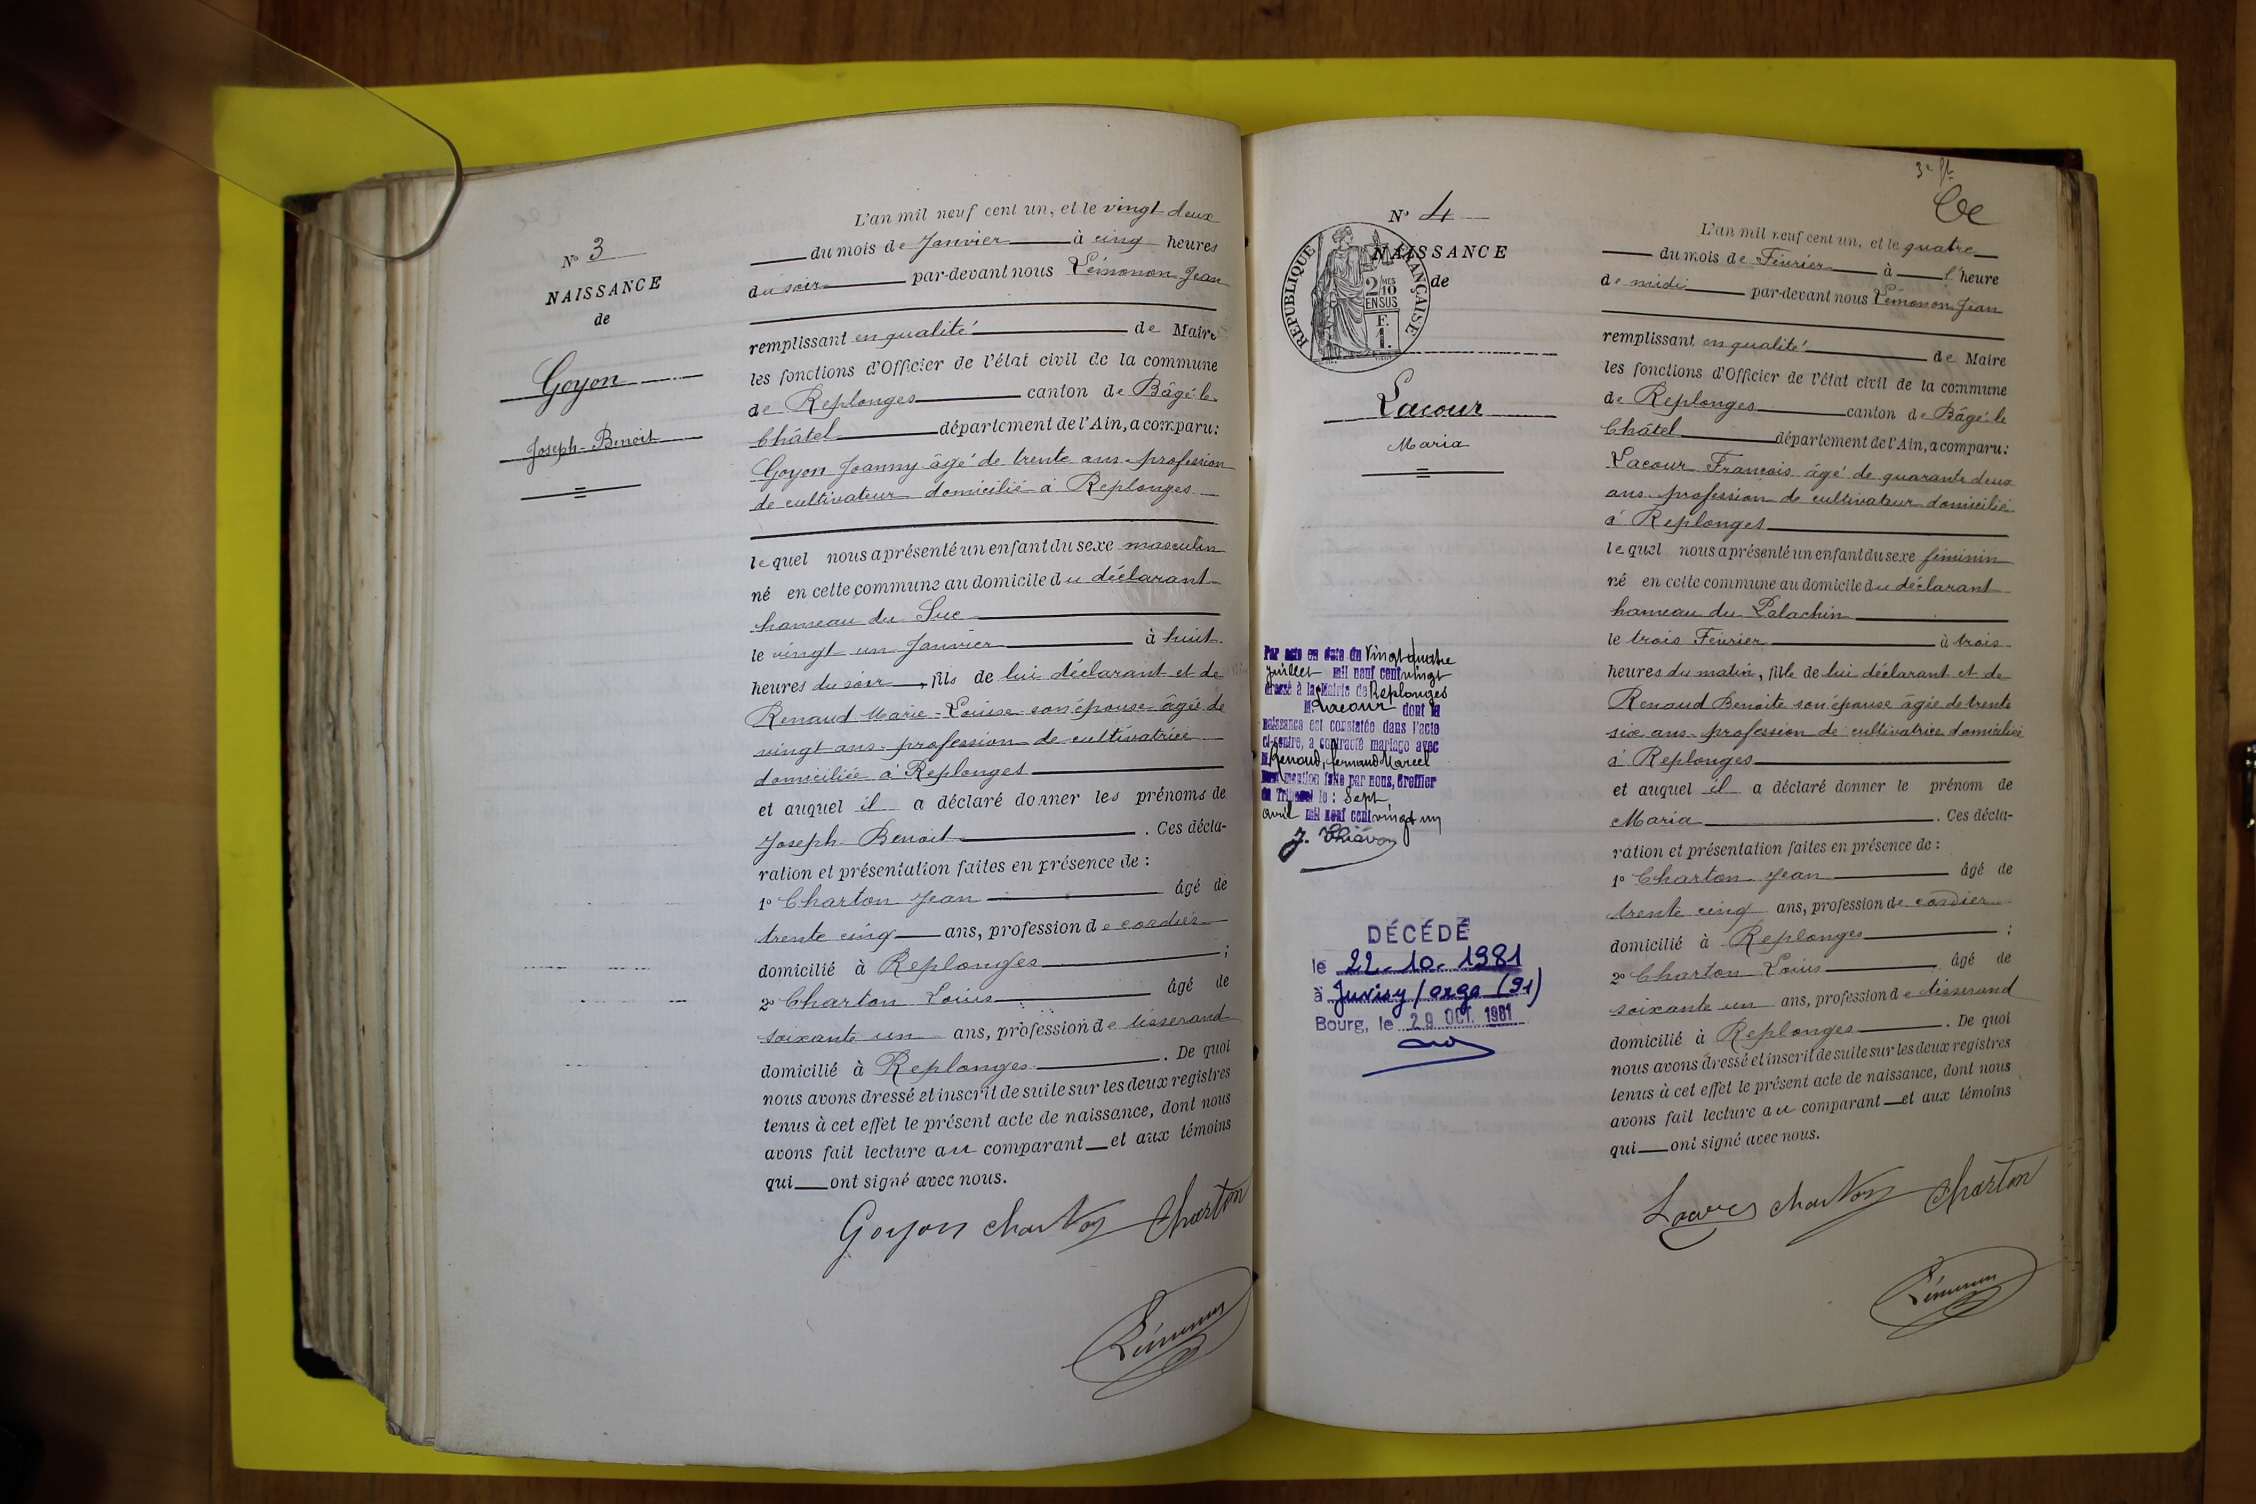 N° 3
NAISSANCE
de
Goyon
Joseph-Benoit
L'an mil neuf cent un, et le vingt deux
du mois de Janvier à cinq heures
du soir par-devant nous Lémonon Jean
remplissant en qualité de Maire
les fonctions d'Officier de l'état civil de la commune
de Replonges canton de Bâgé-le
Châtel département de l'Ain, a comparu:
Goyon Joanny âgé de trente ans profession
de cultivateur domicilié à Replonges
le quel nous a présenté un enfant du sexe masculin
né en cette commune au domicile du déclarant
hameau du Suc
le vingt un Janvier à huit
heures du soir, fils de lui déclarant et de
Renaud Marie-Louise son épouse âgée de
vingt ans profession de cultivatrice
domiciliée à Replonges
et auquel il a déclaré donner les prénoms de
Joseph Benoit. Ces décla-
ration et présentation faites en présence de :
1° Charton Jean âgé de
trente cinq ans, profession de cordier
domicilié à Replonges ;
2° Charton Louis âgé de
soixante un ans, profession de tisserand
domicilié à Replonges. De quoi
nous avons dressé et inscrit de suite sur les deux registres
tenus à cet effet le présent acte de naissance, dont nous
avons fait lecture au comparant et aux témoins
qui ont signé avec nous.
Goyon Charton Charton
Lémonon
3e ft
N° 4
RÉPUBLIQUE FRANÇAISE
2 MES
10
EN SUS
F.
1.
NAISSANCE
de
Lacour
Maria
Par acte en date du vingt quatre
juillet mil neuf cent vingt
dressé à la Mairie de Replonges
M Lacour dont la
naissance est constatée dans l'acte
ci-contre, a contracté mariage avec
M Renaud, Fernand Marcel
mention faite par nous, Greffier
du Tribunal le : Sept
avril mil neuf cent vingt un
DÉCÉDÉ
le 22-10-1981
à Juvisy/orge (91)
Bourg, le 29 OCT. 1981
L'an mil neuf cent un, et le quatre
du mois de Février à l'heure
de midi par-devant nous Lémonon Jean
remplissant en qualité de Maire
les fonctions d'Officier de l'état civil de la commune
de Replonges canton de Bâgé-le
Châtel département de l'Ain, a comparu:
Lacour François âgé de quarante deux
ans profession de cultivateur domicilié
à Replonges
le quel nous a présenté un enfant du sexe féminin
né en cette commune au domicile du déclarant
hameau du Palachin
le trois Février à trois
heures du matin, fille de lui déclarant et de
Renaud Benoite son épouse âgée de trente
six ans profession de cultivatrice domiciliée
à Replonges
et auquel il a déclaré donner le prénom de
Maria. Ces décla-
ration et présentation faites en présence de :
1° Charton Jean âgé de
trente cinq ans, profession de cordier
domicilié à Replonges ;
2° Charton Louis âgé de
soixante un ans, profession de tisserand
domicilié à Replonges. De quoi
nous avons dressé et inscrit de suite sur les deux registres
tenus à cet effet le présent acte de naissance, dont nous
avons fait lecture au comparant et aux témoins
qui ont signé avec nous.
Lacour Charton Charton
Lémonon